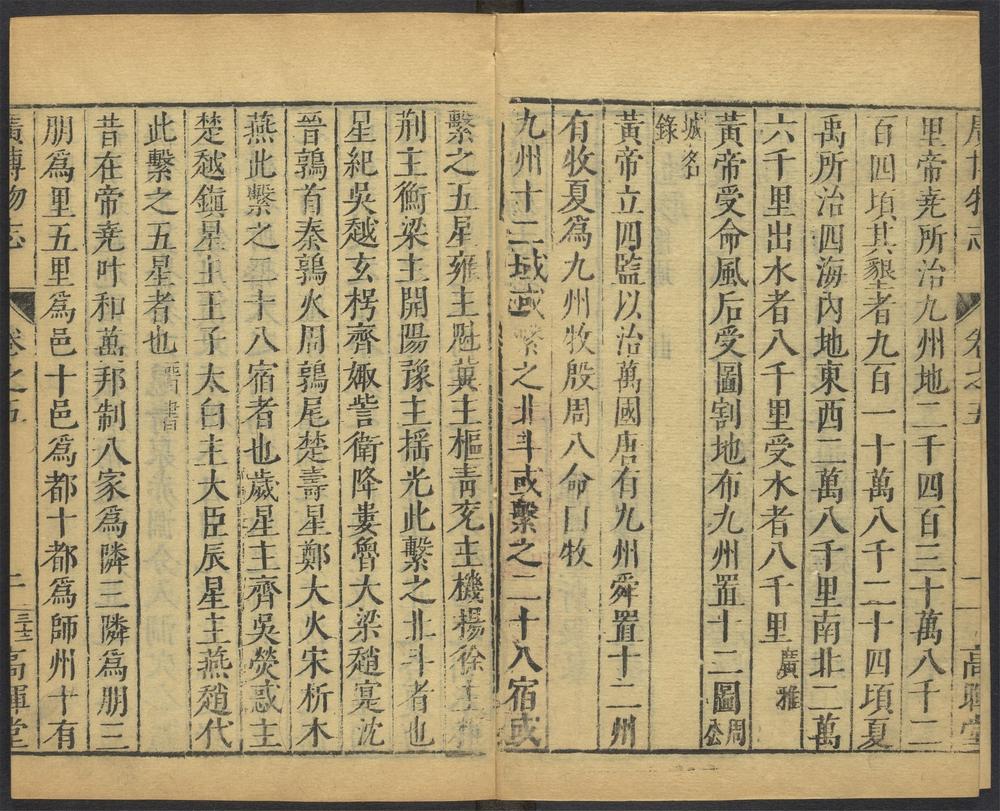 廣博物志 卷之五 高暉堂
里帝堯所治九州地二千四百三十萬八千二
百四頃其墾者九百一十萬八千二十四頃夏
禹所治四海內地東西二萬八千里南北二萬
六千里出水者八千里受水者八千里廣雅
黃帝受命風后受圖割地布九州置十二圖周公
城名錄
黃帝立四監以治萬國唐有九州舜置十二州
有牧夏爲九州牧殷周八命曰牧
九州十二域或繫之北斗或繫之二十八宿或
繫之五星雍主魁冀主樞青兗主機揚徐主權
荊主衡梁主開陽豫主搖光此繫之北斗者也
星紀吳越玄枵齊娵訾衛降婁魯大梁趙寔沈
晉鶉首秦鶉火周鶉尾楚壽星鄭大火宋析木
燕此繫之二十八宿者也歲星主齊吳熒惑主
楚越鎮星主王子太白主大臣辰星主燕趙代
此繫之五星者也晉書
昔在帝堯叶和萬邦制八家爲隣三隣爲朋三
朋爲里五里爲邑十邑爲都十都爲師州十有
廣博物志 卷之五 二 高暉堂